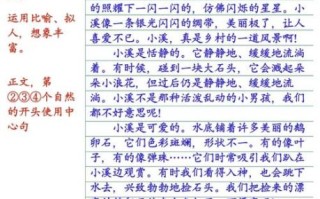 运用比喻、拟
人，想象丰
富。
正文，第
②③④个自然
的开头使用中
心句
的照耀下一闪一闪的，仿佛闪烁的星星。小
溪像一条银光闪闪的绸带，美丽极了，让人
喜爱不已。小溪，真是乡村的一道风景啊！
小溪是恬静的。它静静地、缓缓地流淌
着。有时侯，碰到一块大石头，它会溅起朵
朵小浪花，但过后仍是静静地、缓缓地流
淌。小溪不是那种活泼乱动的小男孩，我们
都不好意思呢！
小溪是可爱的。水底铺着许多美丽的鹅
卵石，它们色彩斑斓，形状不一。有的像叶
子，有的像弹珠……它们时常吸引我们趴在
小溪边观赏。有时我们看得入迷，也会跳下
水去，兴致勃勃地捡石头。我们把捡来的漂